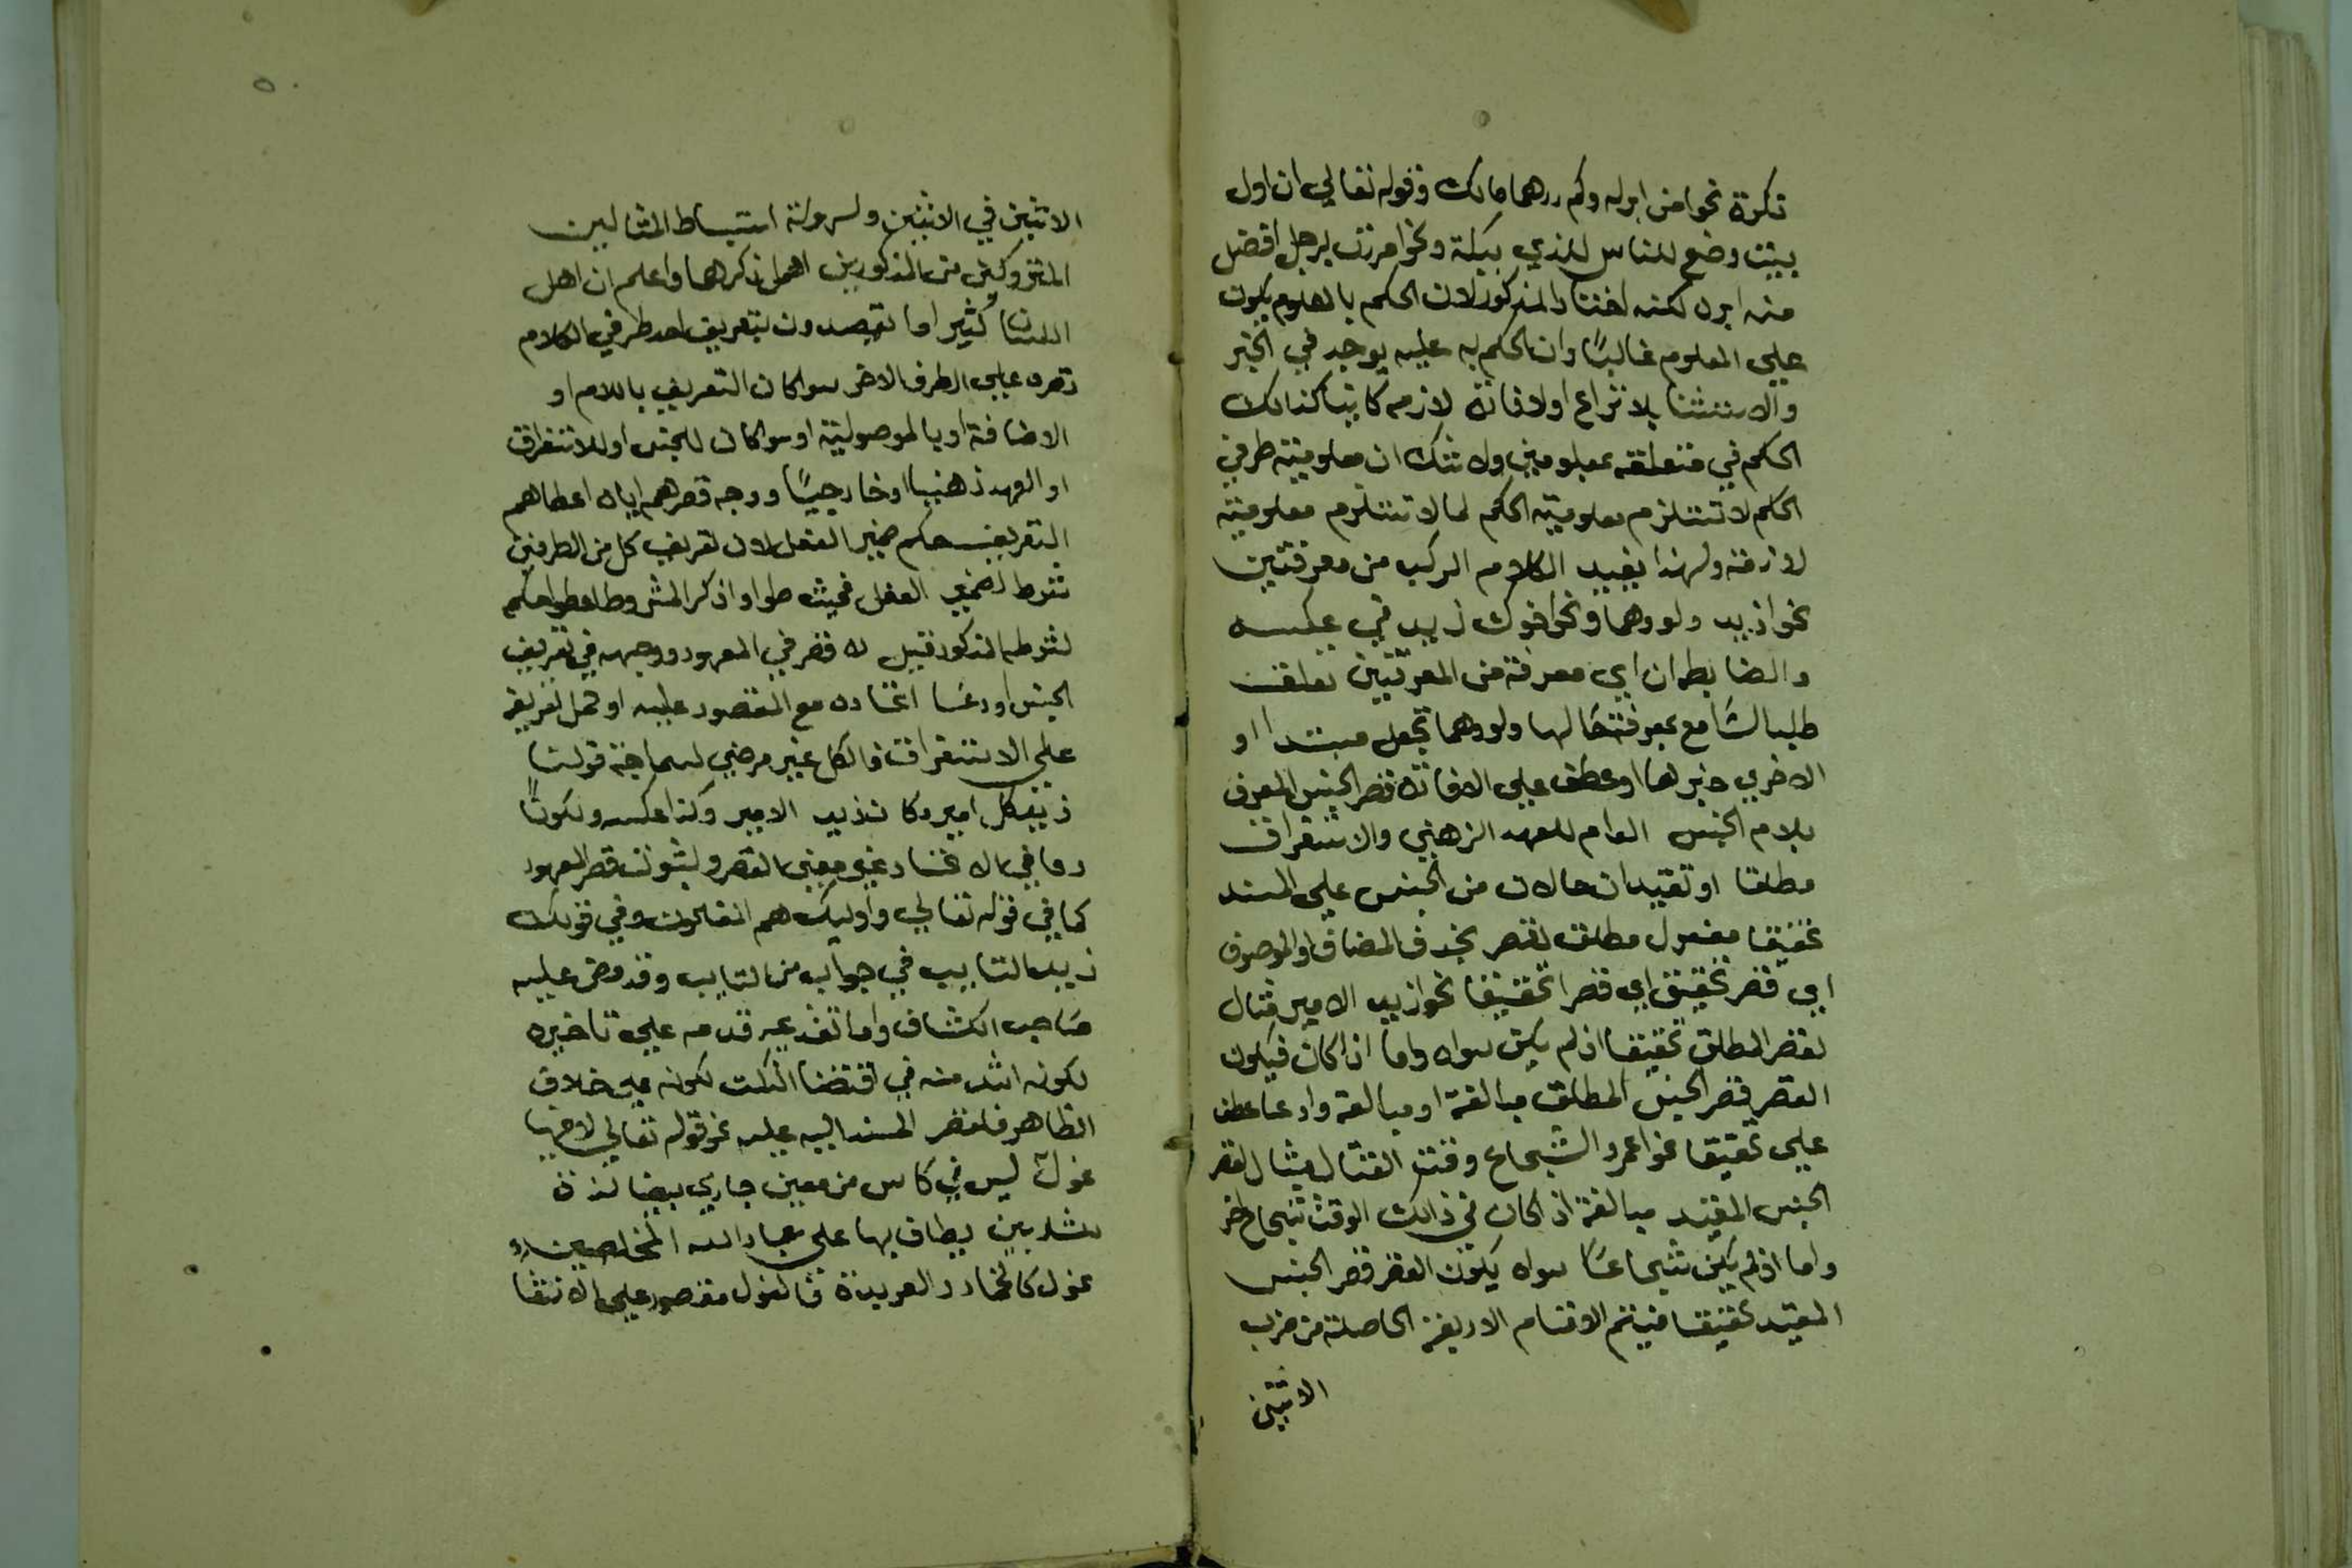 نكرة نحو من ابوك وكم درهما مالك وقوله تعالي ان اول
بيت وضع للناس للذي ببكة ونحوا مررت برجل افضل
منه ابوه لكنه المذكور لان الحكم بالمعلوم يكون
علي المعلوم غالبًا وان الحكم به عليه يوجد في الخبر
والاستثنا بلا نزاع اولا فائدة لازمه كائنا كذالك
الحكم في متعلقه بمعلومين ولا شك ان معلومية طرفي
الحكم لا تستلزم معلومية الحكم لما لا تستلزم معلومية
لازمه ولهذا يفيد الكلام المركب من معرفتين
نحوا زيد ونحوا اخوك زيد في عكسه
والضابط ان اي معرفة من المعرفتين تعلقت
طلب السامع بمعرفة حالها تجعل مبتدا او
الاخري خبرها او عطف علي الافادة قصر الجنس المعرف
بلام الجنس العام للعهد الذهني والاستغراق
مطلقا او تقييد ان حالات من الجنس علي المسند
تحقيقا مفعول مطلق لقصر بحذف المضاف او الموصوف
اي قصر تحقيق اي قصرا تحقيقا نحوا زيد الامير مثال
لقصر المطلق تحقيقا اذا لم يكن سواه واما اذا كان فيكون
القصر قصر الجنس المطلق مبالغة او مبالغة وادعا عطف
علي تحقيقا نحوا عمرو الشجاع وقت القتال مثال لقصر
الجنس المقيد مبالغة اذا كان في ذالك الوقت شجاع اخر
واما اذا لم يكن شجاعًا سواه يكون القصر قصر الجنس
المقيد تحقيقا فيتم الاقسام الاربعة الحاصلة من ضرب
الاثنين
الاثنين في الاثنين ولسهولة استنباط المثالين
المتروكين من المذكورين اهمل ذكرهما واعلم ان اهل
اللسان كثيرا ما يقصدون بتعريف احد طرفي الكلام
قصره علي الطرف الاخر سوا كان التعريف باللام او
الاضافة او بالموصولية او سوا كان للجنس او للاستغراق
او العهد ذهنيا او خارجيًا ووجه قصرهم اياه اعطاهم
التعريف حكم ضمير الفصل لان تعريف كل من الطرفين
شرط لضمير الفصل فحيث ذكر المشروط اعطوا حكم
لشرطه المذكور قيل لا قصر في المعهود ووجهه في تعريف
الجنس اودعا اتحاده مع المقصور عليه او حمل تعريفه
علي الاستغراق والكل غير مرضي لسماجة قولنا
زيد كل امير وكا زيد الامير وكذا عكسه ولكون
دعا في الاتحاد غير معني القصر ولثبوت قصر المعهود
كما في قوله تعالي واوليك هم المفلحون وفي قولك
زيد التايب في جواب من التايب وقد نص عليه
صاحب الكشاف واما تقديمه قدمه علي تاخيره
لكونه اشد منه في اقتضا النكت لكونه علي خلاف
الظاهر فلقصر المسند اليه عليه نحو قوله تعالي لا فيها
غول ليس في كاس من معين جاري بيضا لذة
للشاربين يطاف بها علي عباد الله المخلصين
غول كالخمار والعربدة فالغول مقصور علي الانتفا